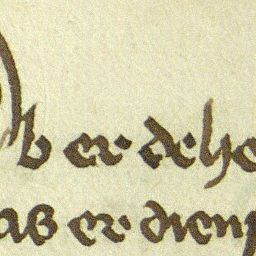 b er dehe
as er dien